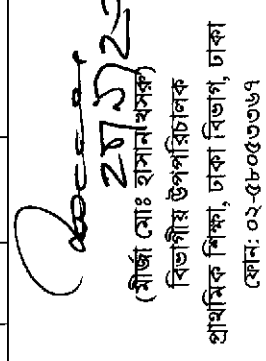 (মীর্জা মোঃ হাসান খসরু)
বিভাগীয় উপপরিচালক
প্রাথমিক শিক্ষা, ঢাকা বিভাগ, ঢাকা
ফোন: ০২-৫৮০৫৩৩৬৭